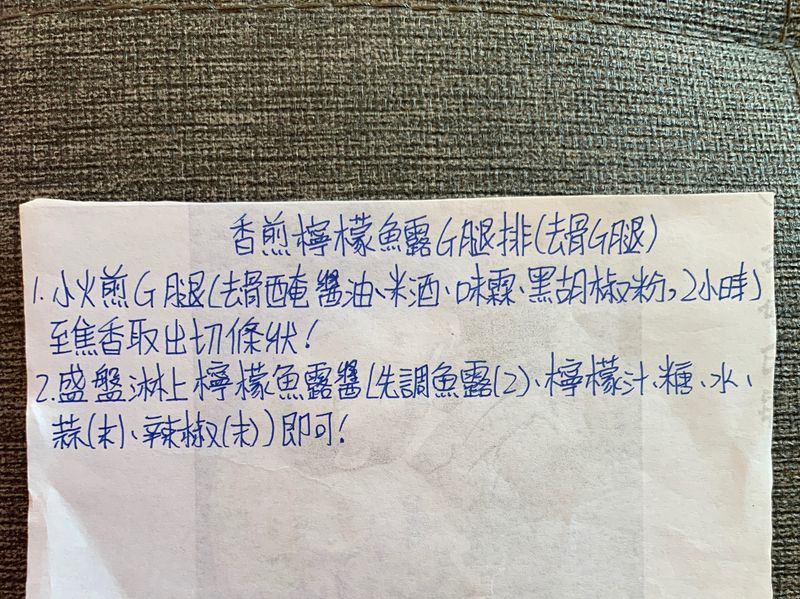 香煎檸檬魚露G腿排(去骨G腿)
1. 小火煎G腿(去骨醃醬油、米酒、味霖、黑胡椒粉,2小時)
至焦香取出切條狀!
2. 盛盤淋上檸檬魚露醬(先調魚露(2)、檸檬汁、糖、水、
蒜(末)、辣椒(末))即可!